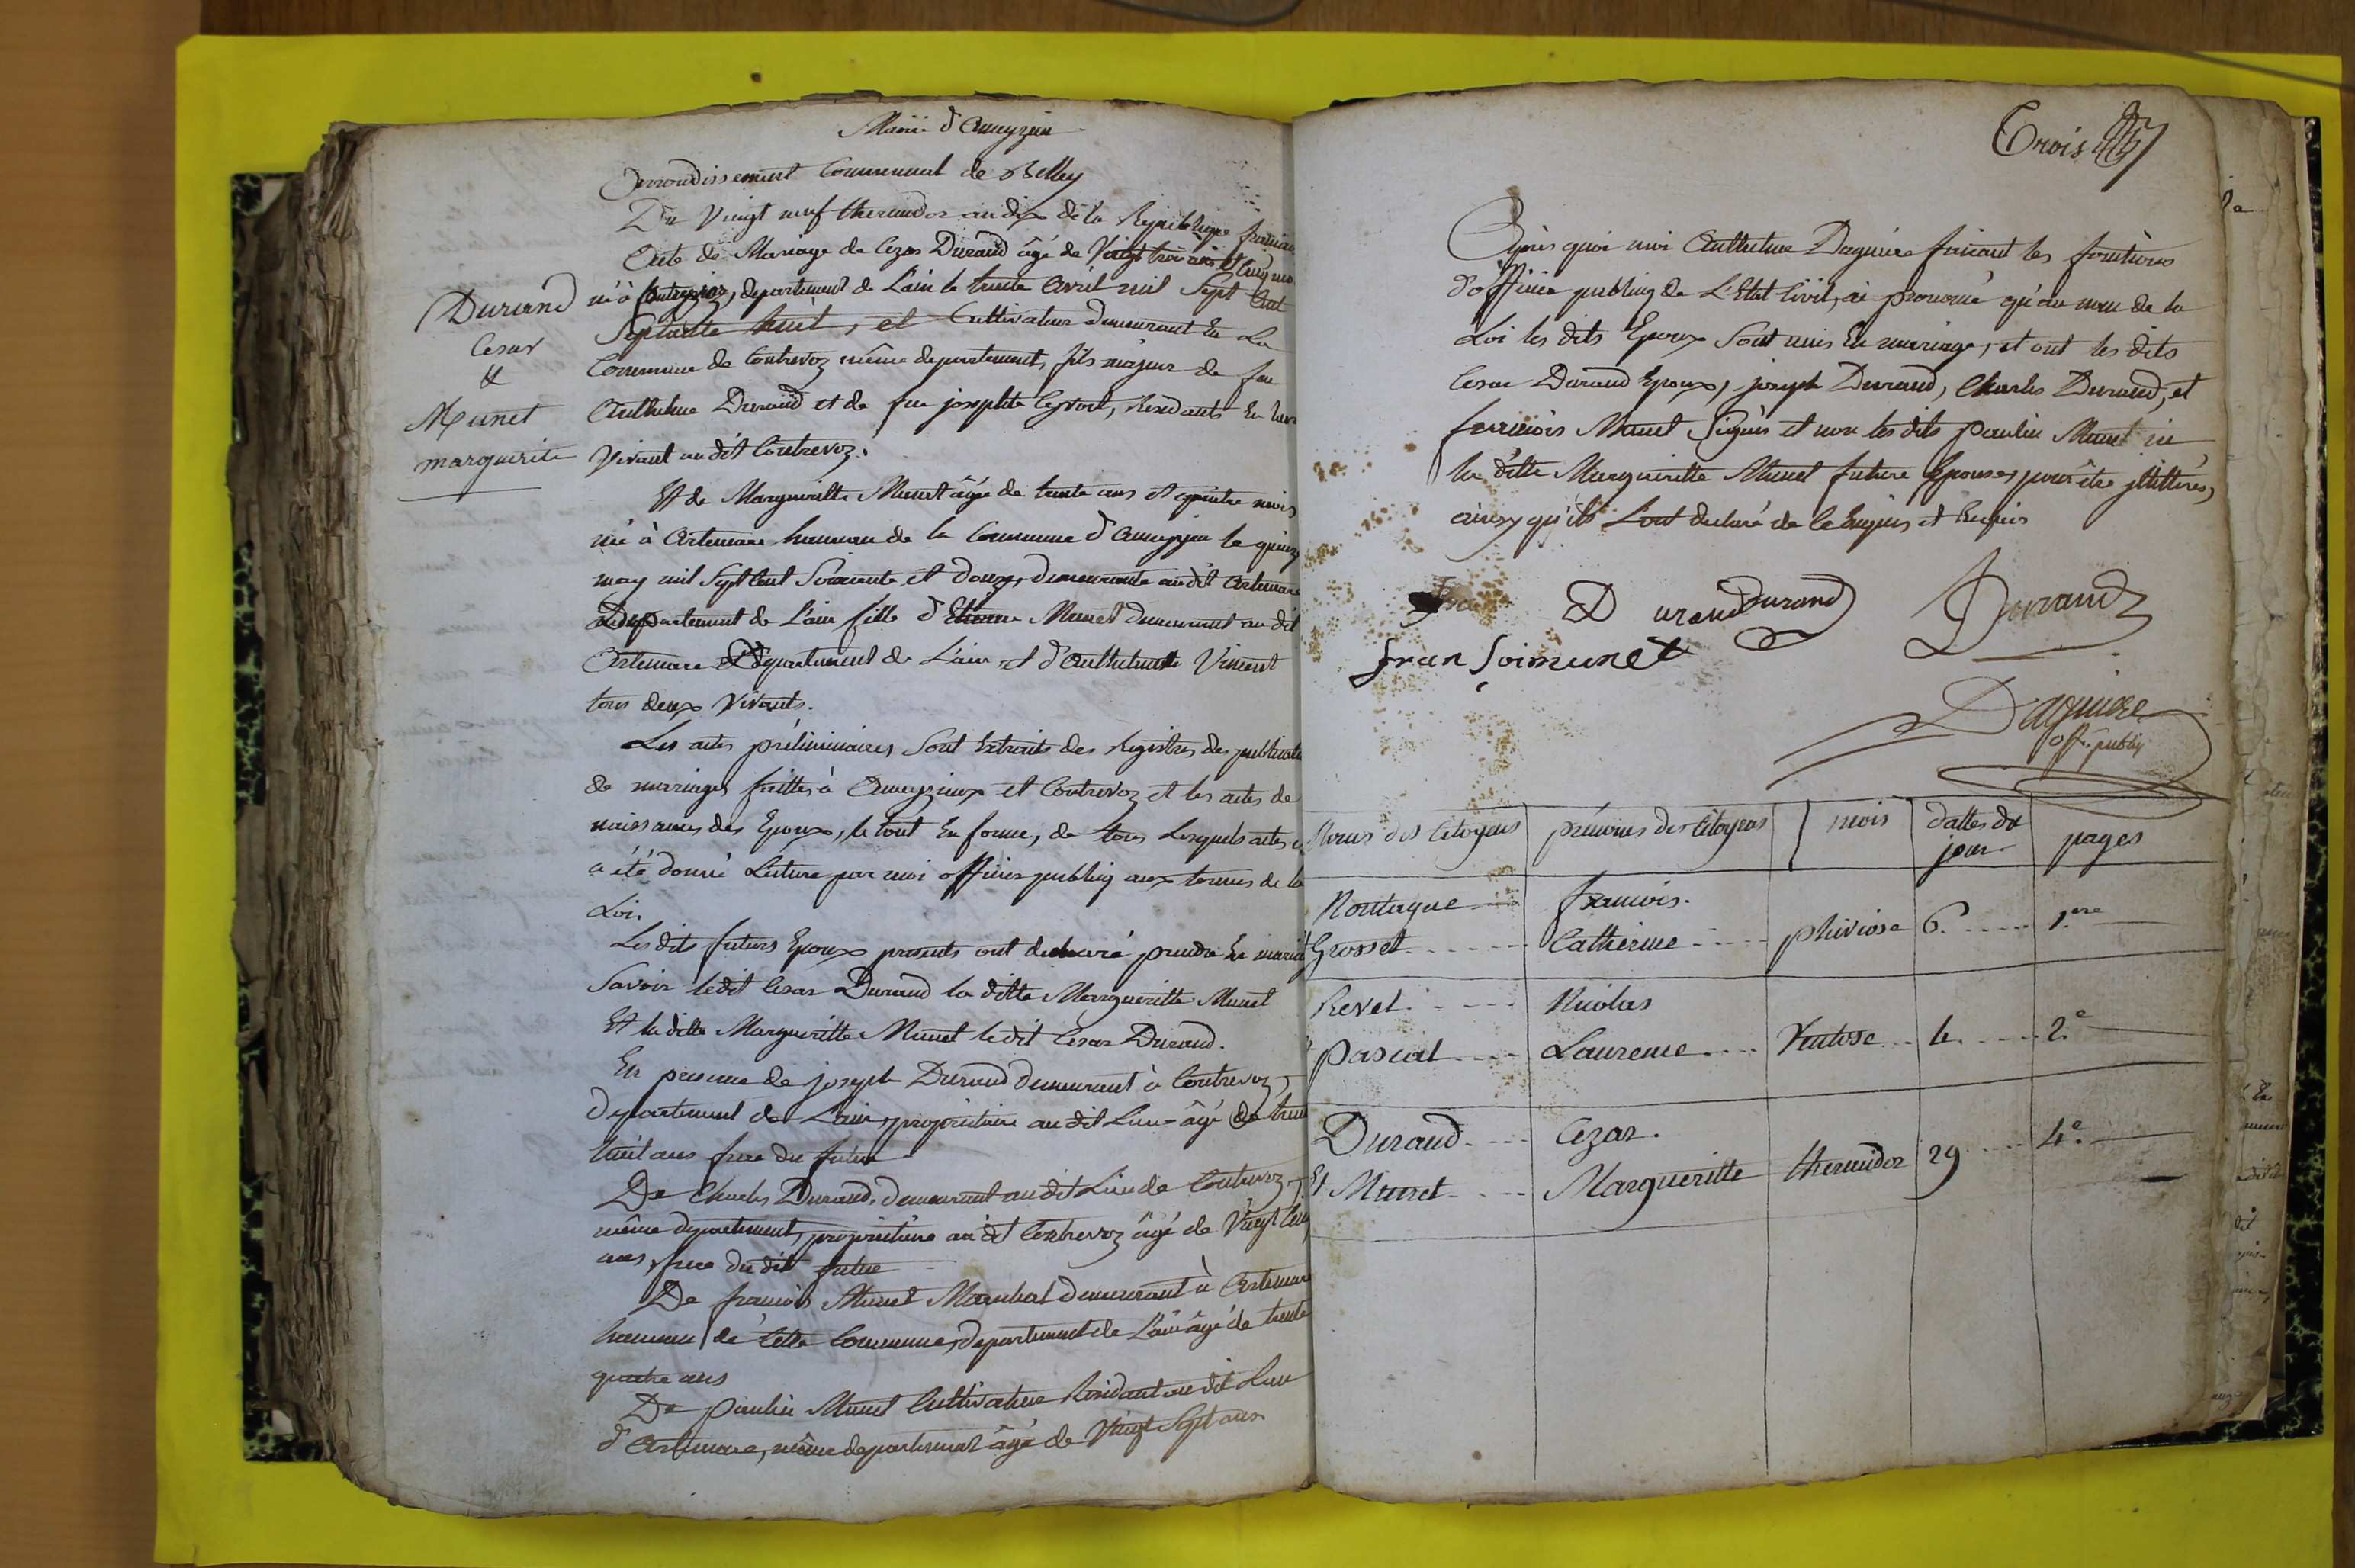 Mairie d'Ameyzieu
Arrondissement Communal de Belley
Du Vingt neuf thermidor an dix de la Republique francai
Acte de Mariage de Cezar Durand âgé de Vingt trois ans et
Durand
Cesar
&
Munet
marguerite
né à Contrevoz, departement de L'ain le trente Avril mil Sept Cent
Septante huit, et Cultivateur demeurant En La
Commune de Contrevoz même departement, fils majeur de feu
Anthelme Durand et de feue josephte, Residants En leur
Vivant au dit Contrevoz.
Et de Margueritte Munet âgée de trente ans et quatre mois
née à Artemare hameau de la Commune d'Ameyzieu le quinze
may mil Sept Cent Soixante et douze, demeurante audit Artemare
Departement de L'ain fille d'Etienne Munet demeurant au dit
Artemare Departement de L'ain et d'Anthelmette Vincent
tous deux Vivants.
Les actes préliminaires Sont Extraits des Registres des publicati
de mariages faittes à Ameyzieux et Contrevoz et les actes de
naissances des Epoux, le tout En forme, de tous Lesquels actes il
a été donné Lecture par moi officier publiq aux termes de la
Loi.
Les dits futurs Epoux presents ont declaré prendre En mariage
Savoir ledit Cesar Durand la ditte Margueritte Munet
Et la ditte Margueritte Munet le dit Cesar Durand.
En presence de joseph Durand demeurant à Contrevoz,
departement de L'ain, propriétaire au dit Lieu âgé de trente
huit ans frere du futur
De Charles Durand, demeurant au dit Lieu de Contrevoz,
même departement, propriétaire au dt Contrevoz âgé de Vingt Cinq
ans, frere du dit futur
De francois Munet Marechal demeurant à Artemare
hameau de Cette Commune, departement de L'ain âgé de trente
quatre ans
De paulin Munet Cultivateur Residant au dit Lieu
d'Artemare, même departement âgé de Vingt Sept ans
Trois
Après quoi moi Anthelme Daguiere faisant les fonctions
d'officier publiq de L'Etat Civil, ai prononcé qu'au nom de la
Loi les dits Epoux Sont unis En mariage, et ont les dits
Cesar Durand Epoux, joseph Durand, Charles Durand, et
francois Munet Signés et non les dits Paulin Munet ni
la ditte Margueritte Munet future Epouse, pour être jllittérés,
ainsy qu'ils L'ont declaré de ce Enquis et Requis
Durand Durand Durand
franSoimunet
Daguiere
off. publiq
Noms des Citoyens prénoms des Citoyens mois dattes du jour pages
Montagne francois.
Grosset Catherine pluviose 6 1.ere
Revel Nicolas
pascal Laurence Ventose 2.e
Durand Cezar.
Et Munet Margueritte thermidor 29 4.e